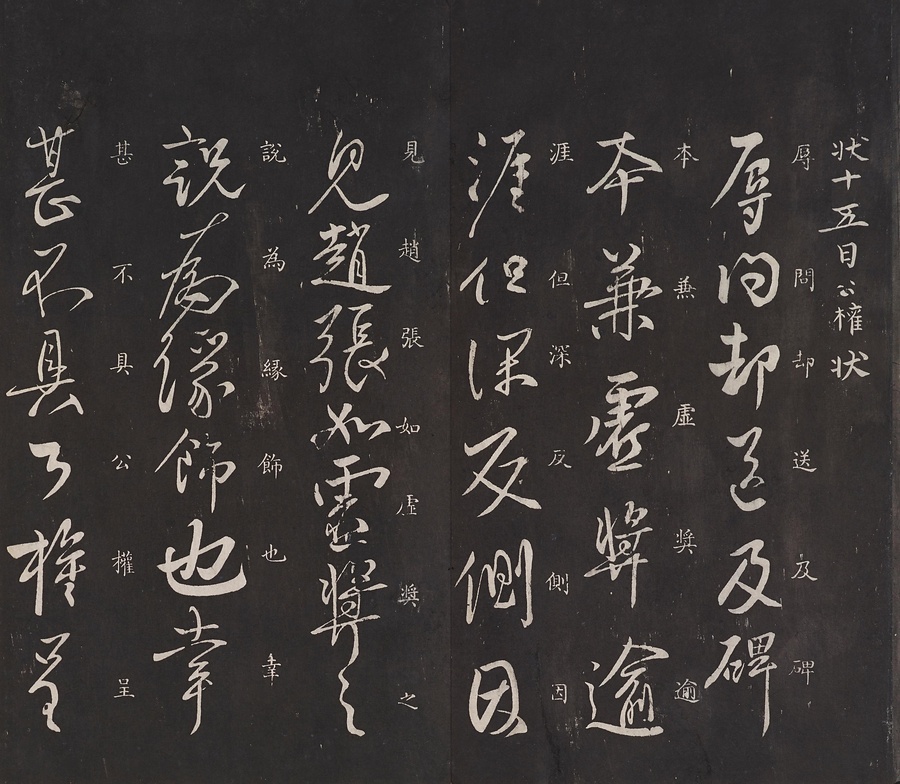 状十五日公權状
辱問却送及碑
辱問却送及碑
本兼虚奨逾
本兼虚奨逾
涯但深反側因
涯但深反側因
見趙張如虚奨之
見趙張如虚奨之
說為緣飾也幸
說為緣飾也幸
甚不具公權呈
甚不具公權呈